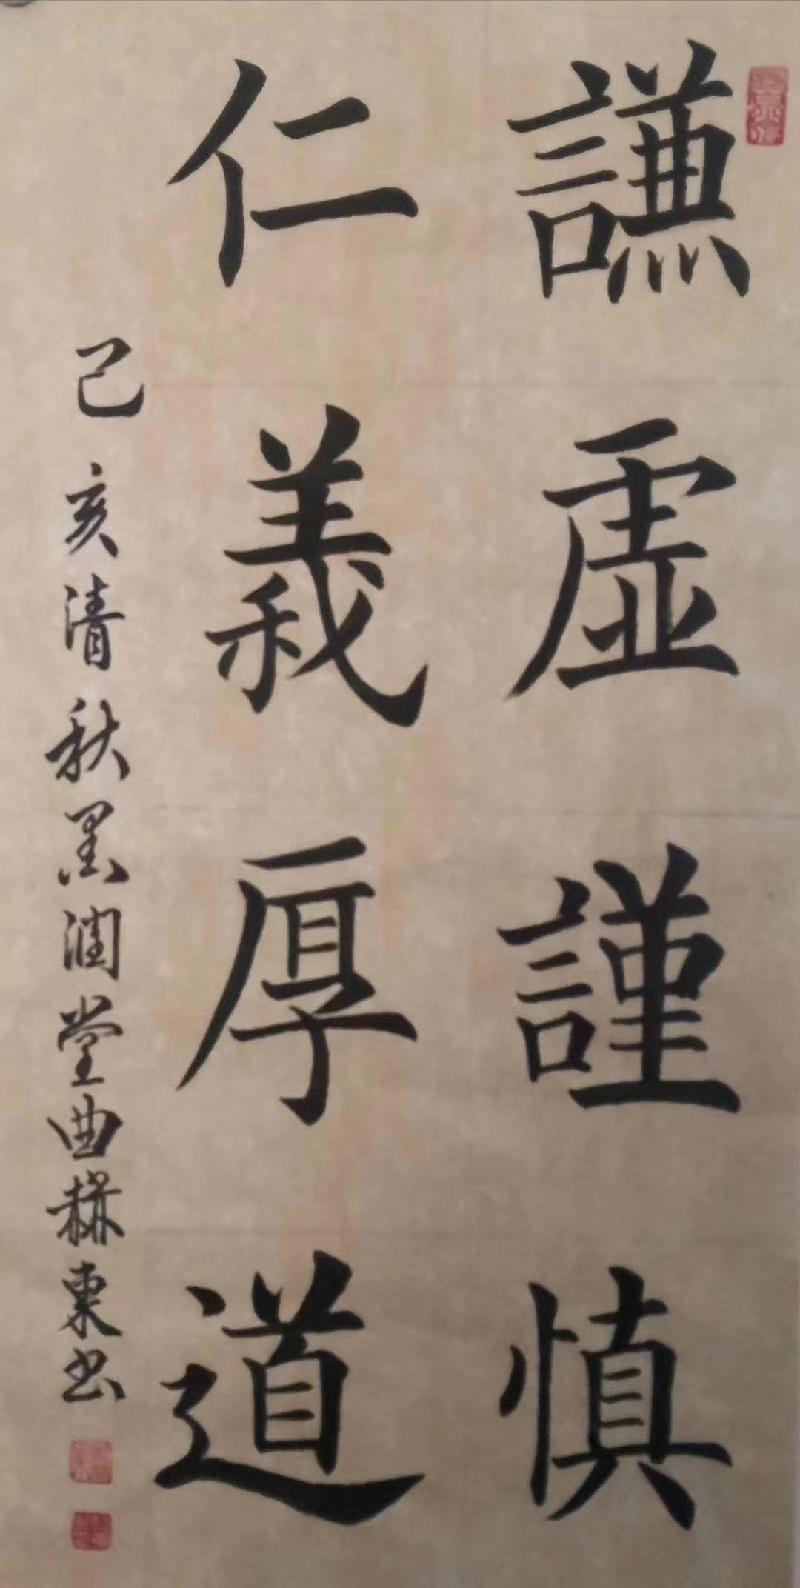 謙虛謹慎
仁義厚道
己亥清秋墨潤堂曲赫東书